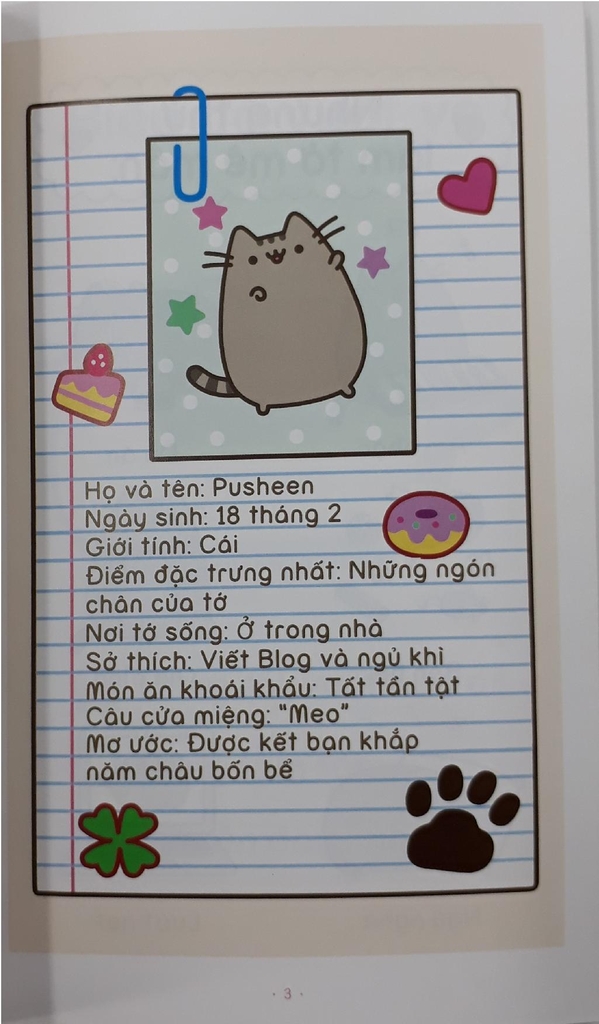 Họ và tên: Pusheen
Ngày sinh: 18 tháng 2
Giới tính: Cái
Điểm đặc trưng nhất: Những ngón
chân của tớ
Nơi tớ sống: Ở trong nhà
Sở thích: Viết Blog và ngủ khì
Món ăn khoái khẩu: Tất tần tật
Câu cửa miệng: "Meo"
Mơ ước: Được kết bạn khắp
năm châu bốn bể
· 3 ·